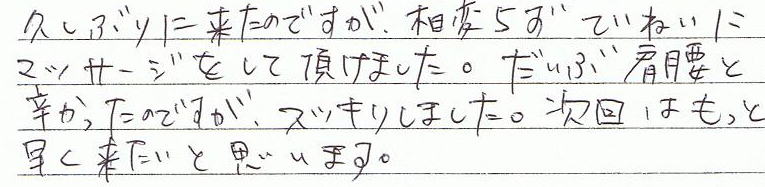 久しぶりに来たのですが、相変らず ていねいに
マッサージをして頂けました。だいぶ肩腰と
辛かったのですが、スッキリしました。次回はもっと
早く来たいと思います。